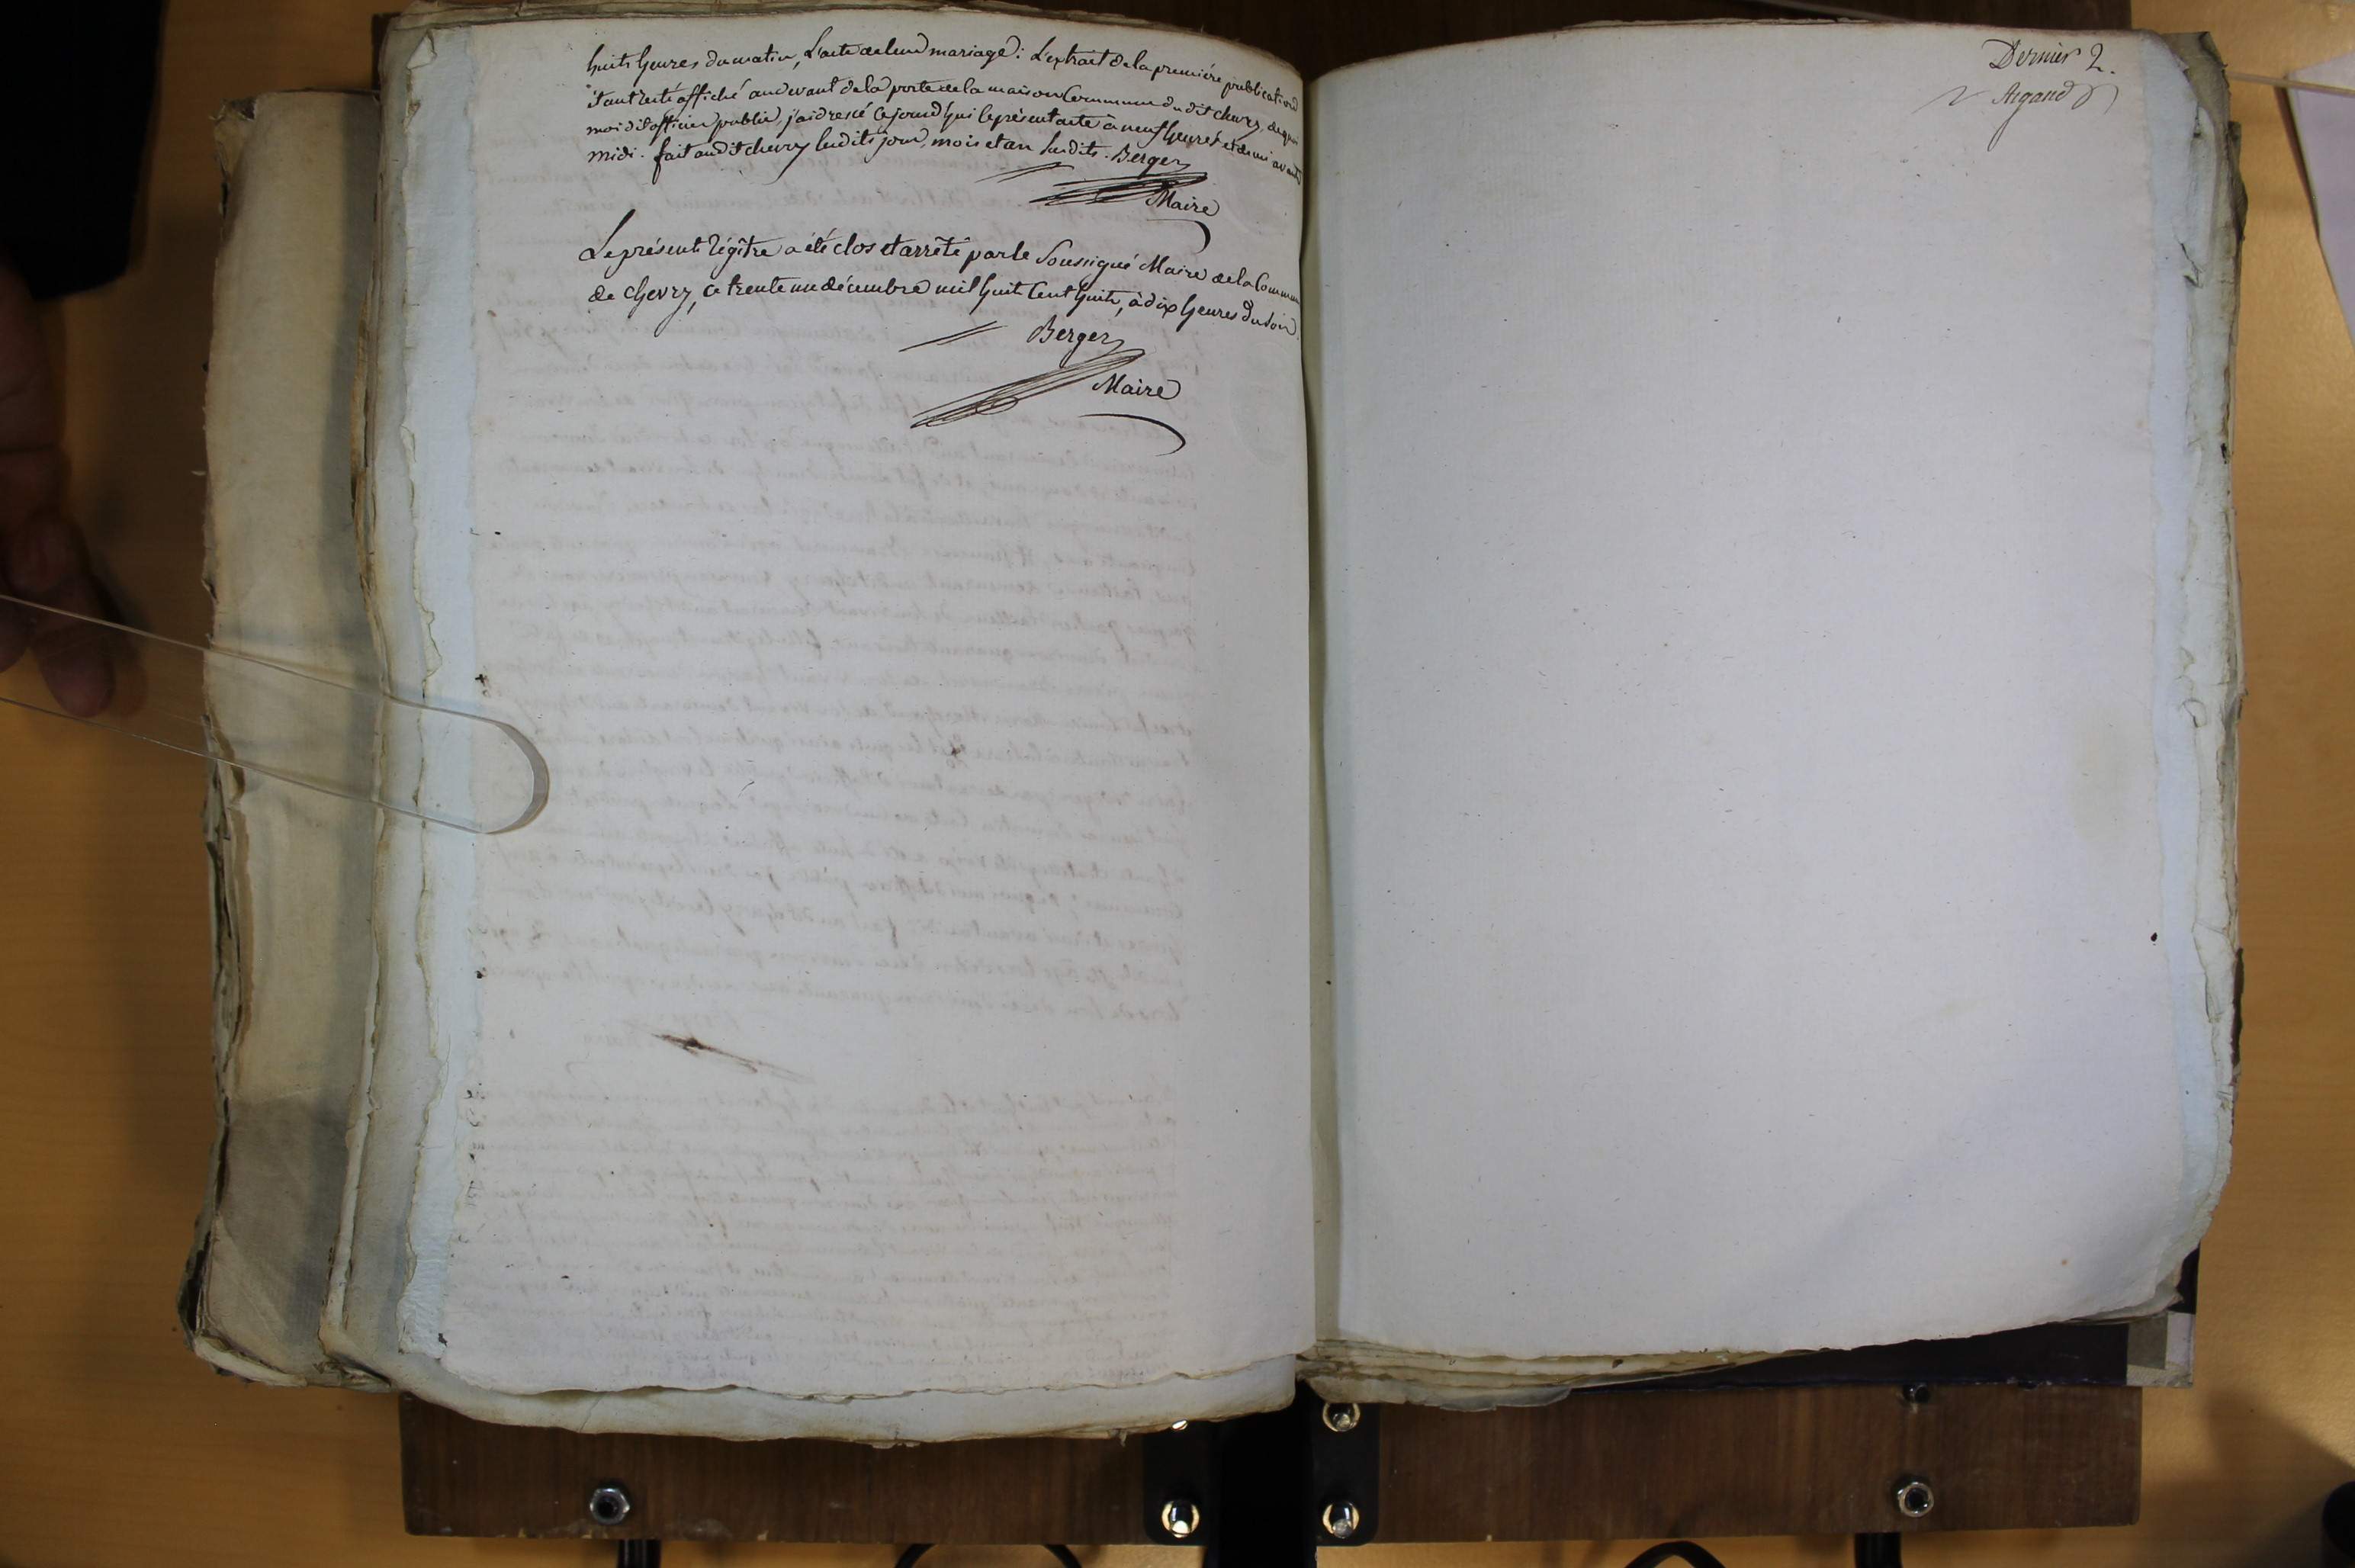 huits heures du matin, L'acte de leur mariage: L'extrait de la première publication
étant resté affiché au devant de la porte de la maison Commune du dit chevry, de quoi
moi dit officier public, j'ai dressé ce jourd'hui le présent acte à neuf heures et demi avant
midi. fait audit chevry lesdits jour, mois et an susdits. Berger
Maire
Le présent régître a été clos et arrêté par le Soussigné Maire de la Commune
de chevry, ce trente un décembre mil huit Cent huit, à dix heures du soir.
Berger
Maire
Dernier 2.
Argand